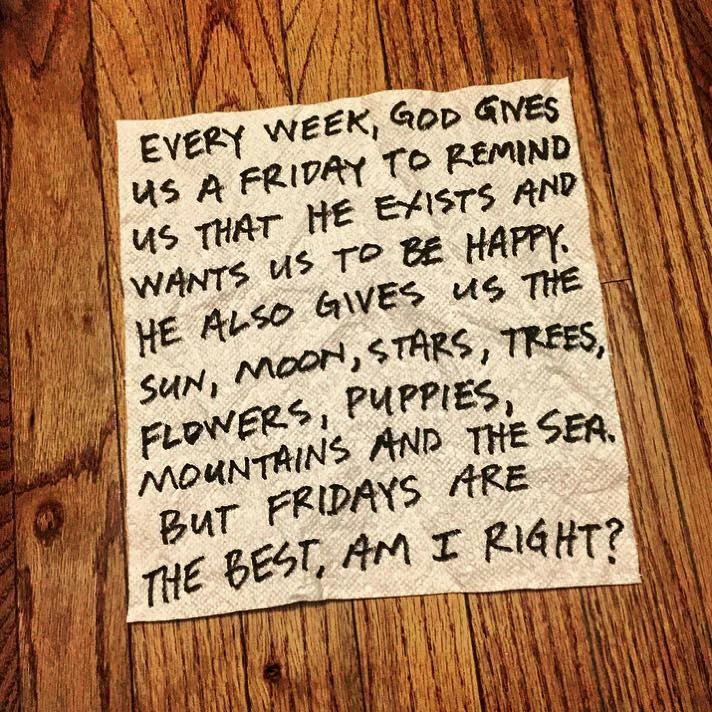 EVERY WEEK, GOD GIVES
US A FRIDAY TO REMIND
US THAT HE EXISTS AND
WANTS US TO BE HAPPY.
HE ALSO GIVES US THE
SUN, MOON, STARS, TREES,
FLOWERS, PUPPIES,
MOUNTAINS AND THE SEA.
BUT FRIDAYS ARE
THE BEST, AM I RIGHT?